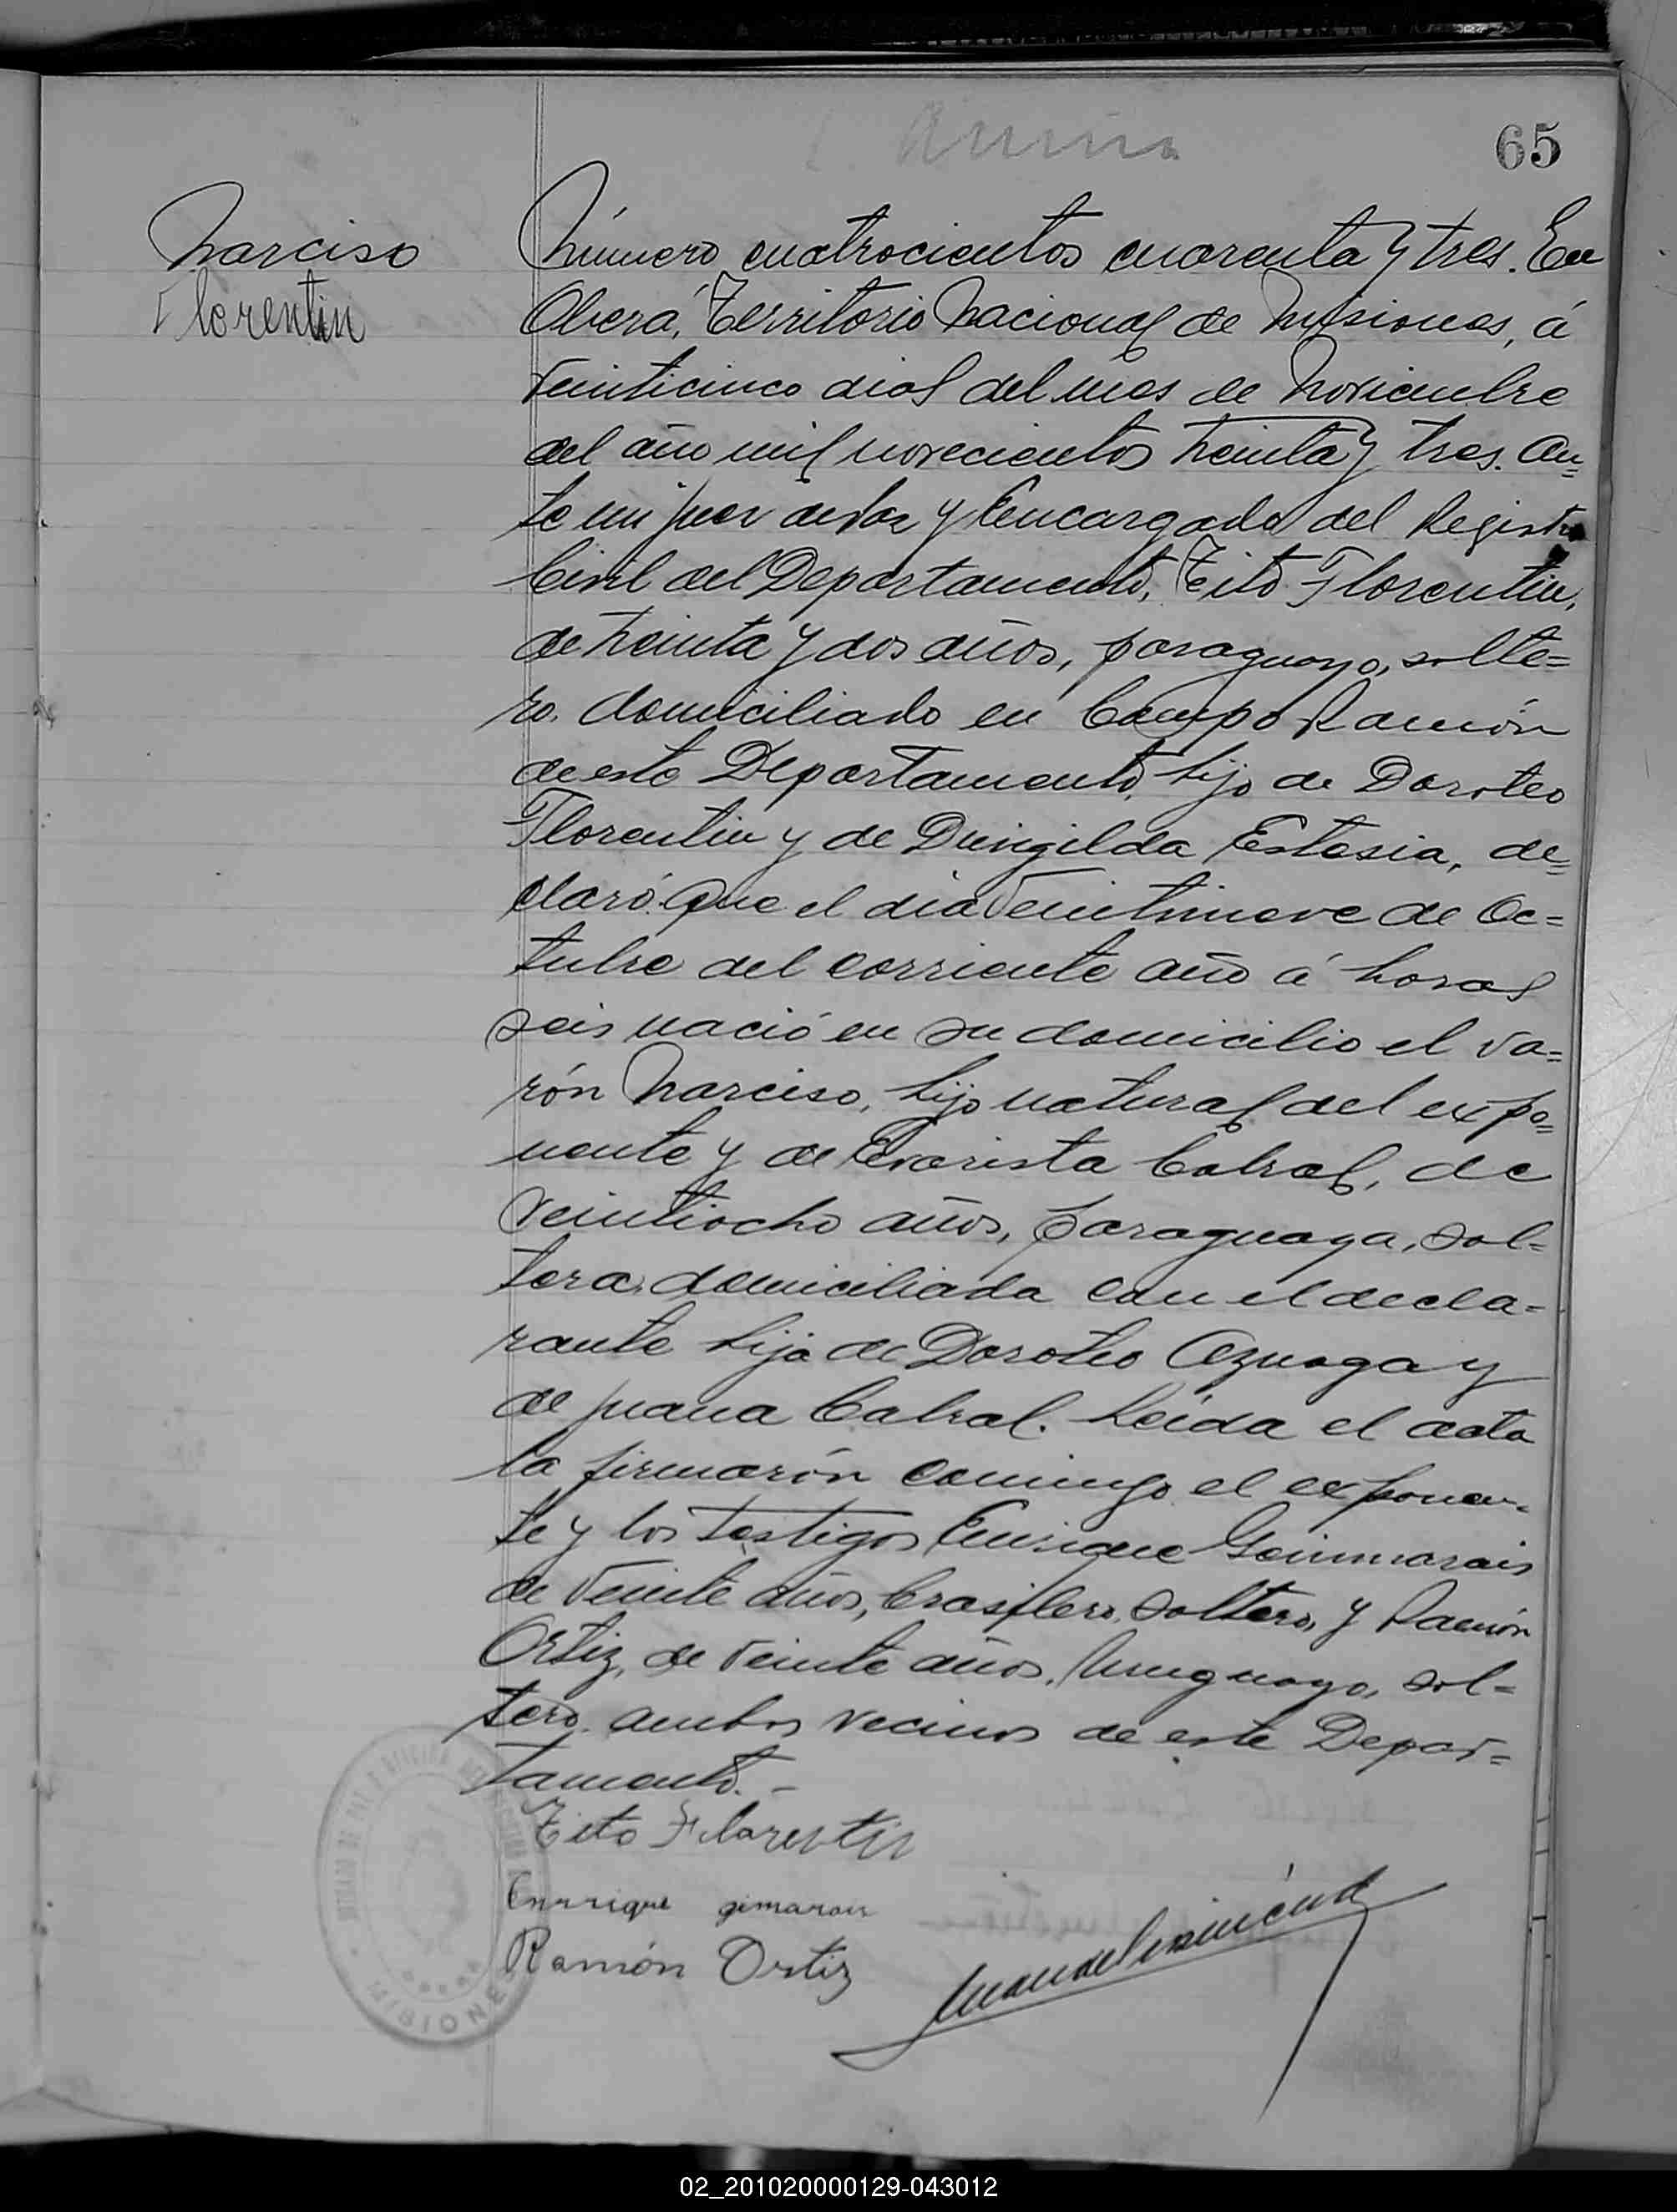 65
Narciso
Florentin
Número cuatrocientos cuarenta y tres. En
Oberá, Territorio Nacional de Misiones, á
veinticinco dias del mes de Noviembre
del año mil novecientos treinta y tres. An=
te mi juez de Paz y Encargado del Registro
Civil del Departamento, Tito Florentin,
de treinta y dos años, paraguayo, solte=
ro, domiciliado en Campo Ramón
de este Departamento, hijo de Doroteo
Florentin y de Estasia, de=
claró: Que el dia veintinueve de Oc=
tubre del corriente año á horas
seis nació en su domicilio el va=
rón Narciso, hijo natural del expo=
nente y de Evarista Cabral, de
veintiocho años, paraguaya, sol=
tera, domiciliada con el decla=
rante hija de Doroteo Azuaga y
de juana Cabral. Leida el acta
la firmarón conmigo el exponen=
te y los testigos Enrique Guimarais
de veinte años, brasilero, soltero, y Ramón
Ortiz, de veinte años, Uruguayo, sol=
tero, ambos vecinos de este Depar=
tamento. -
Tito Florentin
Enrrique gimarais
Ramón Ortiz
MISIONES
02_201020000129-043012